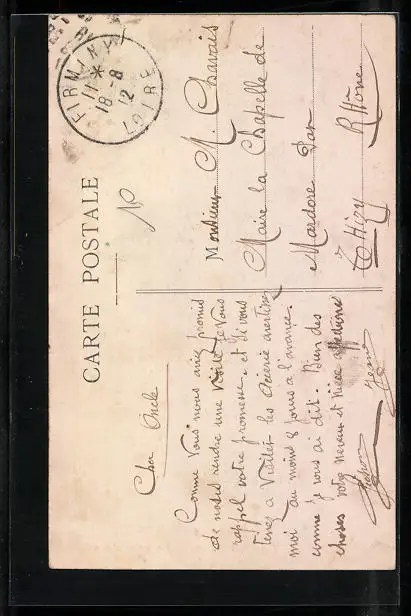 CARTE POSTALE
FIRMINY
11 *
18-8
12
LOIRE
Cher Oncle
Comme vous nous aviez promis
de nous rendre une visite je vous
rappel votre promesse. et si vous
tenez a visiter les avertirez
moi au moins 8 jours a l'avance.
comme je vous ai dit. Bien des
choses votre neveux et nièce affectionné
Jean
Monsieur M. Chavais
Maire la Chapelle de
Mardore Par
Thizy Rhône